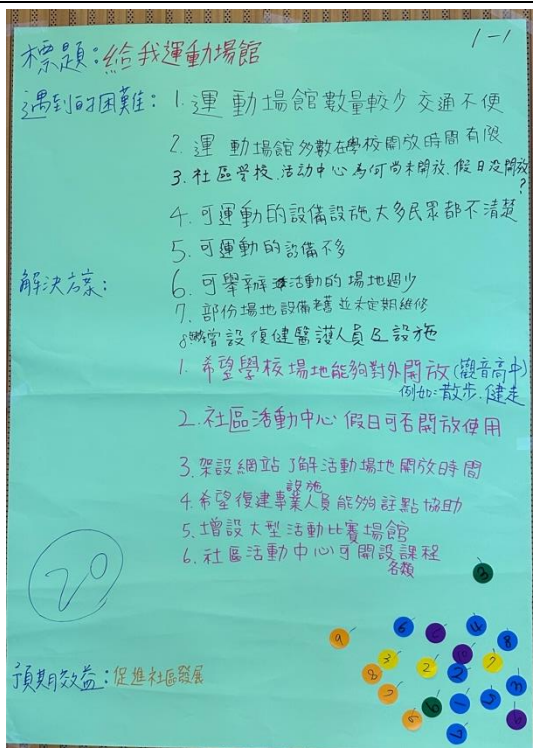 1-1
標題：給我運動場館
遇到的困難：1. 運動場館數量較少 交通不便
2. 運動場館多數在學校開放時間有限
3. 社區學校、活動中心為何尚未開放、假日沒開放?
4. 可運動的設備設施大多民眾都不清楚
5. 可運動的設備不多
解決方案：6. 可舉辦活動的場地過少
7. 部份場地設備老舊並未定期維修
8. 增設復健醫護人員及設施
1. 希望學校場地能夠對外開放(觀音高中)
例如：散步、健走
2. 社區活動中心假日可否開放使用
3. 架設網站了解活動場地開放時間
設施
4. 希望復建專業人員能夠註點協助
5. 增設大型活動比賽場館
6. 社區活動中心可開設課程
各類
20
預期效益：促進社區發展